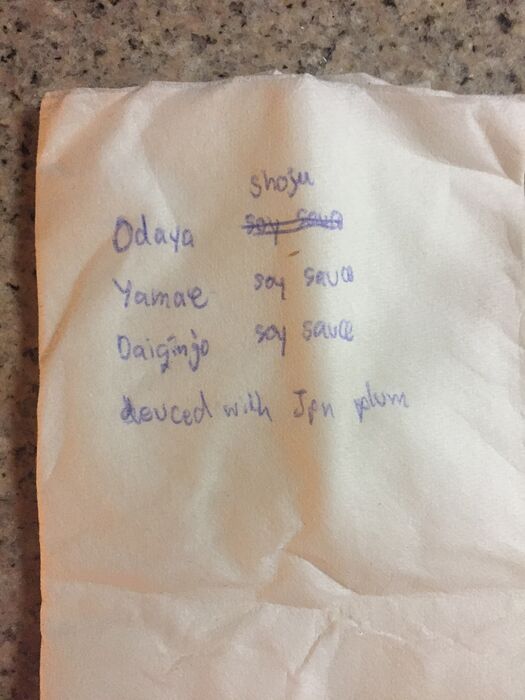 shoju
Odaya soy sauce
Yamae soy sauce
Daiginjo soy sauce
deuced with Jpn plum